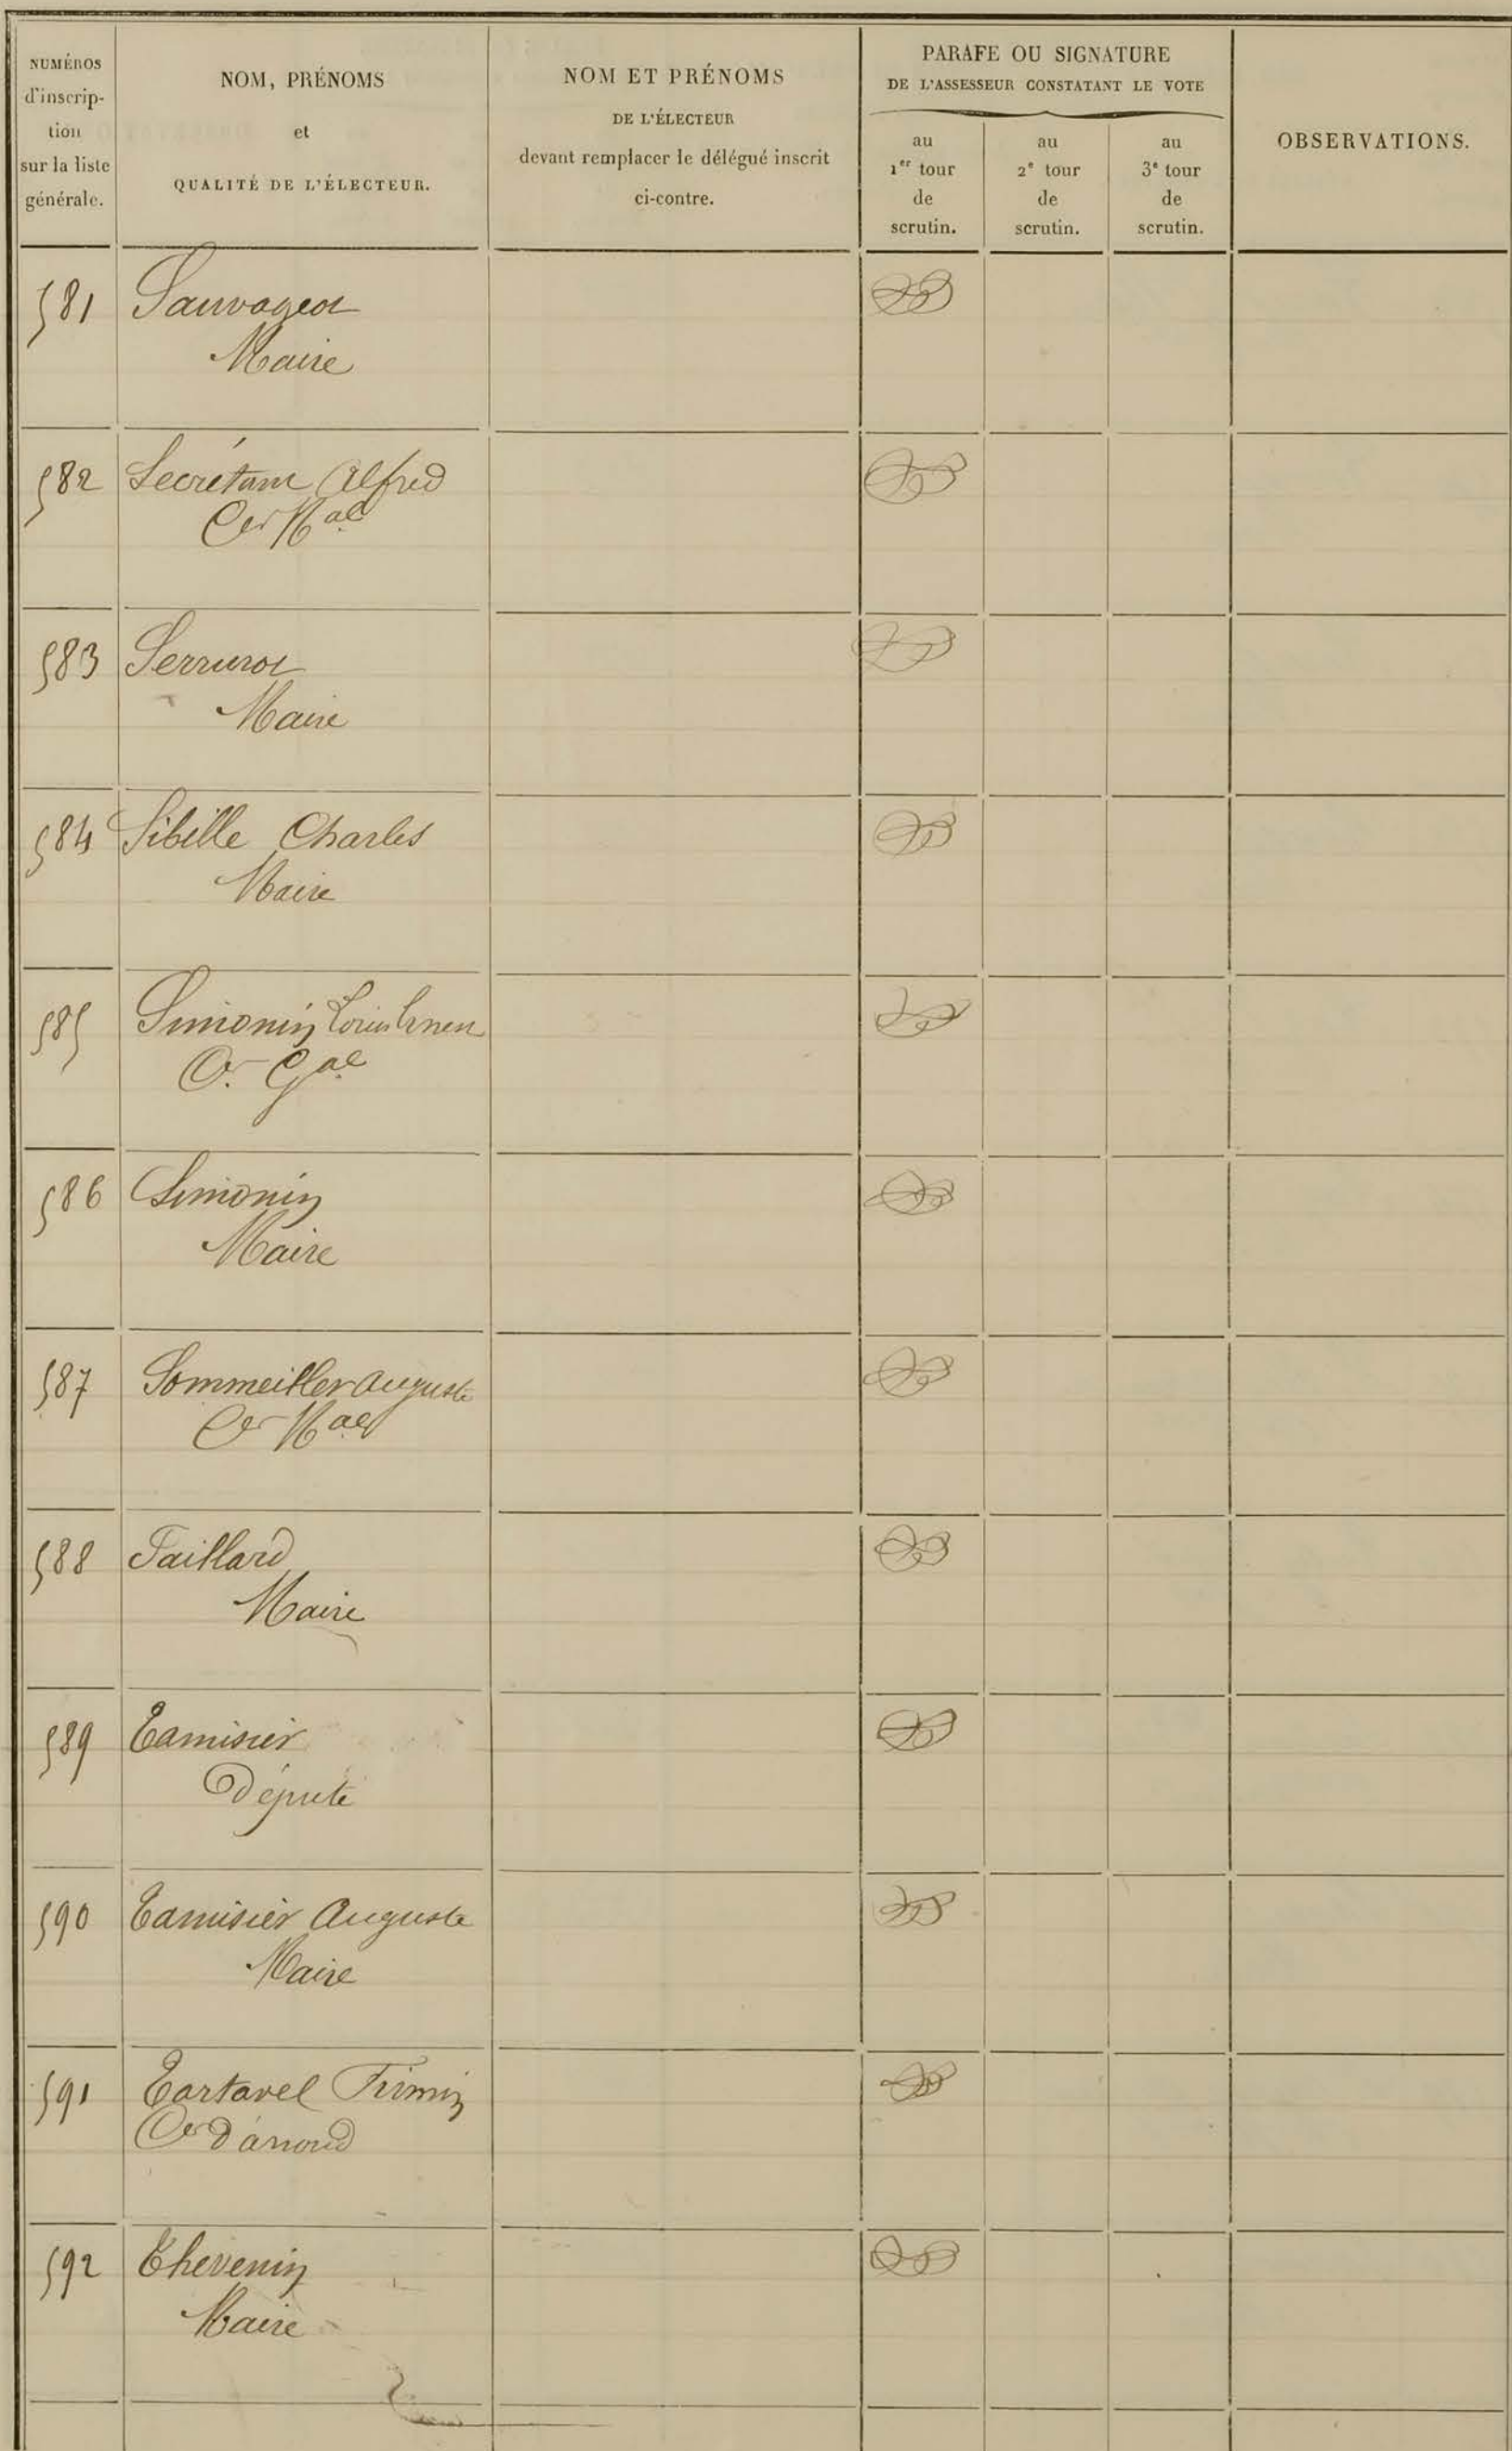 NUMÉROS
d'inscrip-
tion
sur la liste
générale.
NOM, PRÉNOMS
et
QUALITÉ DE L'ÉLECTEUR.
NOM ET PRÉNOMS
DE L'ÉLECTEUR
devant remplacer le délégué inscrit
ci-contre.
PARAFE OU SIGNATURE
DE L'ASSESSEUR CONSTATANT LE VOTE
au
1er tour
de
scrutin.
au
2e tour
de
scrutin.
au
3e tour
de
scrutin.
OBSERVATIONS.
581 Sauvageot
Maire
582 Secrétant Alfred
Cer Mal
583 Serrurot
Maire
584 Sibille Charles
Maire
585 Simonin Louis
Cer Gal
586 Simonin
Maire
587 Sommeiller Auguste
Cer Mal
588 Taillard
Maire
589 Tamisier
Député
590 Tamisier Auguste
Maire
591 Tartavel Firmin
Cer D'arrond
592 Thevenin
Maire